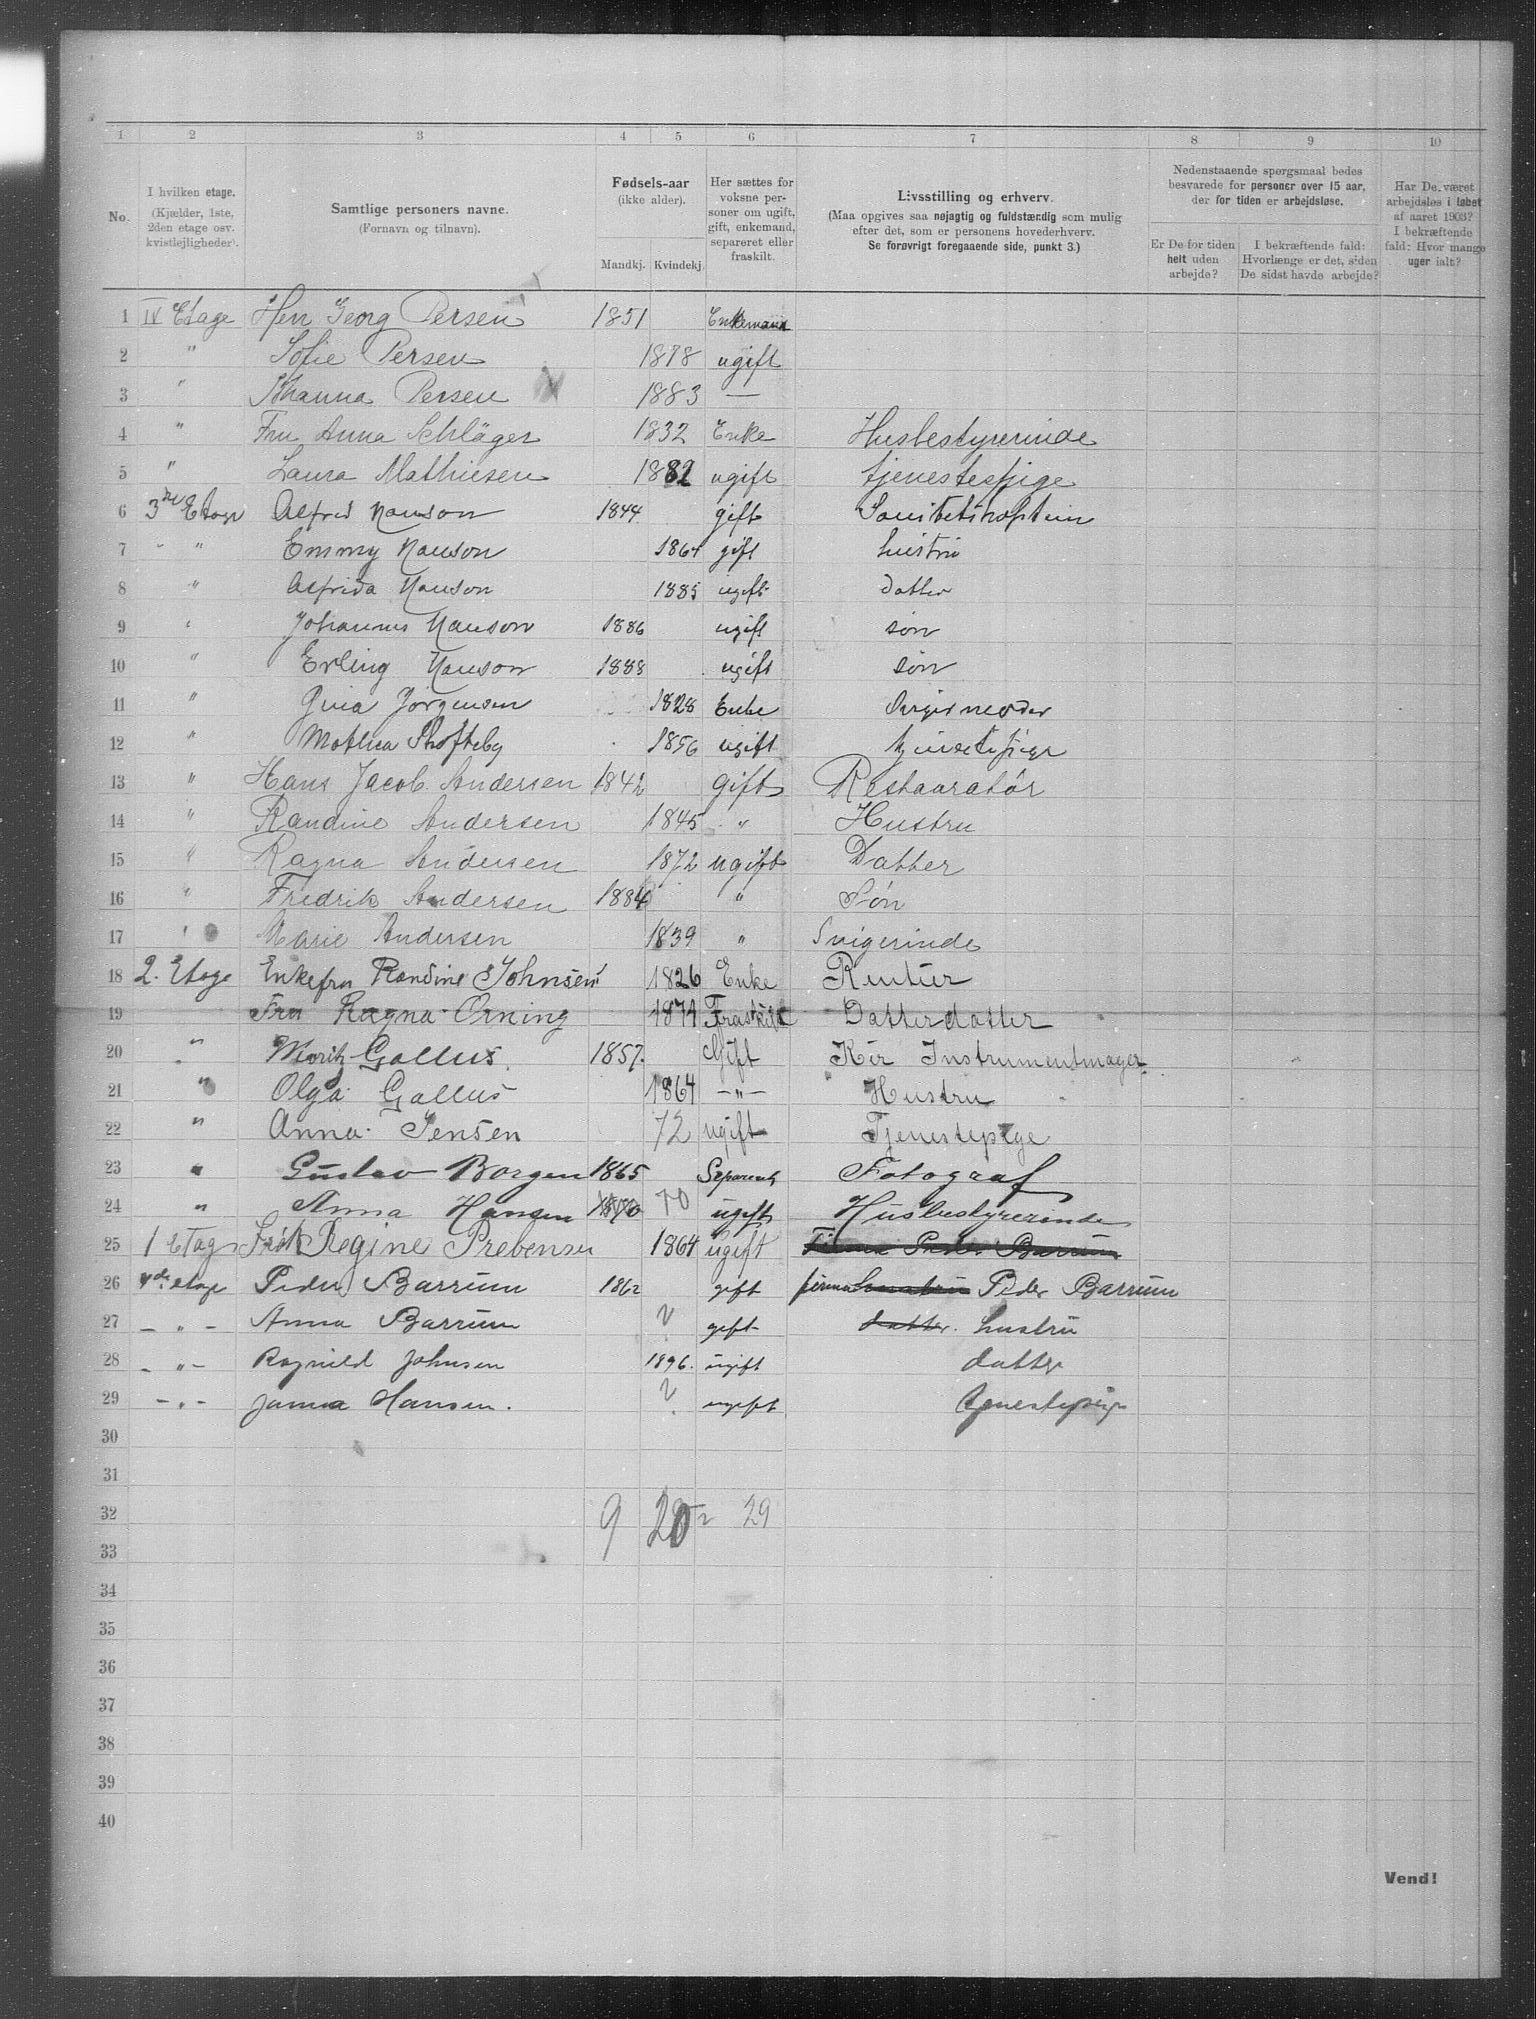 1 2 3 4 5 6 7 8 9 10
No.
I hvilken etage.
(Kjælder, 1ste, 2den etage osv. kvistlejligheder).
Samtlige personers navne.
(Fornavn og tilnavn).
Fødsels-aar
(ikke alder).
Mandkj. Kvindekj.
Her sættes for voksne personer om ugift, gift, enkemand, separeret eller fraskilt.
Livsstilling og erhverv.
(Maa opgives saa nøjagtig og fuldstændig som mulig efter det, som er personens hovederhverv.
Se forøvrigt foregaaende side, punkt 3.)
Nedenstaaende spørgsmaal bedes besvarede for personer over 15 aar, der for tiden er arbejdsløse.
Er De for tiden helt uden arbejde?
I bekræftende fald: Hvorlænge er det, siden De sidst havde arbejde?
Har De været arbejdsløs i løbet af aaret 1903? I bekræftende fald: Hvor mange uger ialt?
1 IV Etage Herr Georg Persen 1851 Enkemand
2 " Sofie Persen 1878 ugift
3 " Johanna Persen 1883 —
4 " Fru Anna Schläger 1832 Enke Husbestyrerinde
5 " Laura Mathiesen 1882 ugift tjenestepige
6 3die Etage Alfred Hanson 1844 gift Sanitetskaptein
7 - " Emmy Hanson 1864 gift hustru
8 " Alfrida Hanson 1885 ugift datter
9 " Johannes Hanson 1886 ugift søn
10 " Erling Hanson 1888 ugift søn
11 " Gina Jørgensen 1828 Enke Svigermoder
12 " Mathea 1856 ugift tjenestepige
13 " Hans Jacob Andersen 1842 gift Restauratør
14 " Randine Andersen 1845 " Hustru
15 " Ragna Andersen 1872 ugift Datter
16 " Fredrik Andersen 1884 " Søn
17 " Marie Andersen 1839 " Svigerinde
18 2. Etage Enkefru Randine Johnsen 1826 Enke Rentier
19 Fru Ragna Orning 1874 Fraskilt Datterdatter
20 " Moritz Gallus. 1857. Gift Kir Instrumentmager
21 " Olga Gallus 1864 —"— Hustru
22 " Anna Jensen 72 ugift Tjenestepige
23 " Gustav Borgen 1865 Separert Fotograf
24 " Anna Hansen 1870 70 ugift Husbestyrerinde
25 1 Etag Frøk Regine Prebensen 1864 ugift Firma Peder Barrum
26 1de etage Peder Barrum 1862 gift firma Peder Barrum
27 — " — Anna Barrum ? gift datter. hustru
28 — " — Ragnild Johnsen 1896. ugift datter
29 — " — Janna Hansen. ? ugift tjenestepige
30
31
32 9 20 29
33
34
35
36
37
38
39
40
Vend!